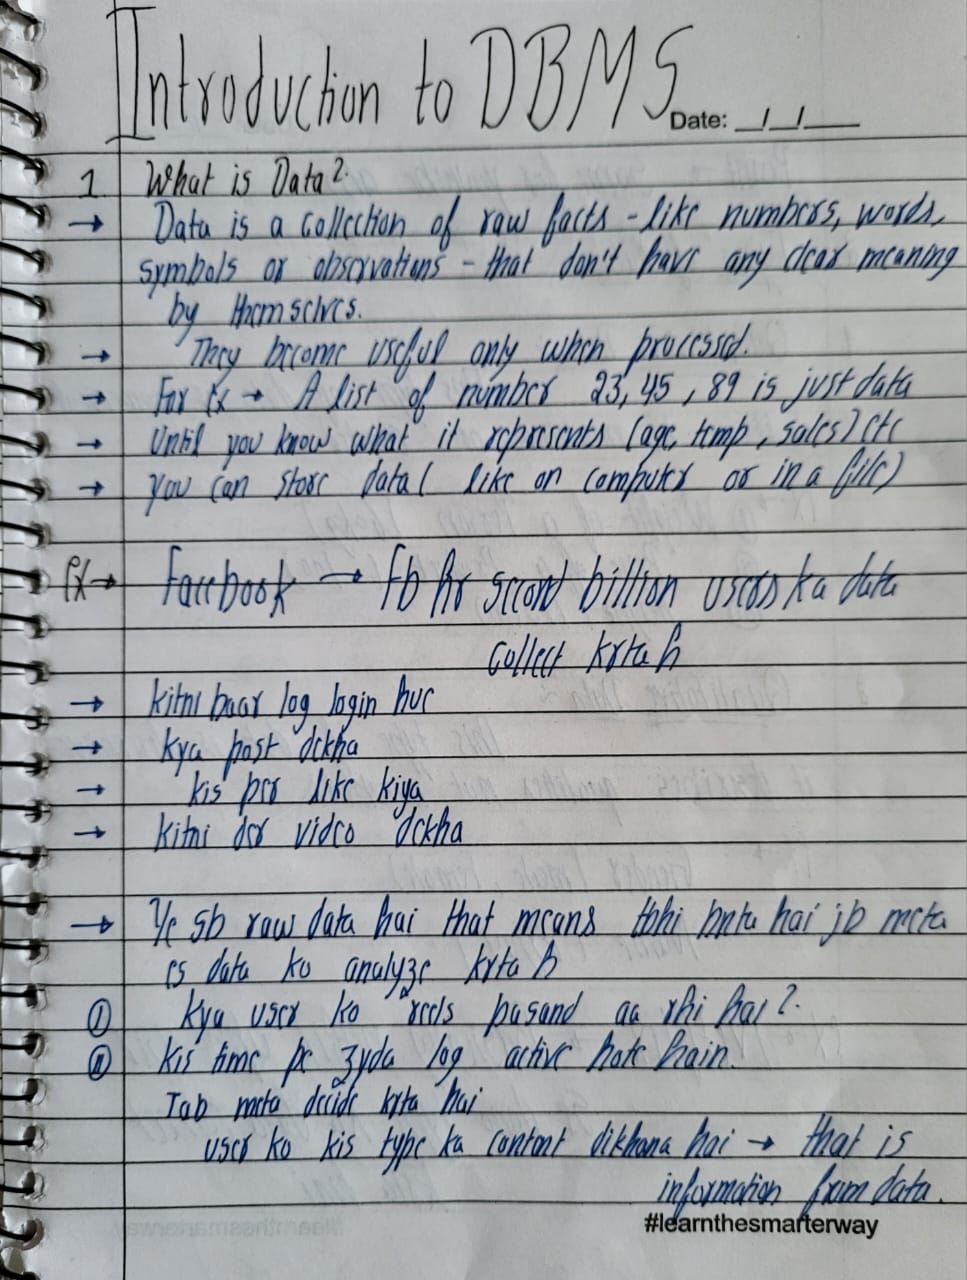 Introduction to DBMS
Date: __/__/____
1 What is Data?
→ Data is a collection of raw facts - like numbers, words,
symbols or observations - that don't have any clear meaning
by themselves.
→ They become useful only when processed.
→ For Ex → A list of number 23, 45, 89 is just data
→ Until you know what it represents (age, temp, sales) etc
→ you can store data ( like on computer or in a file)
Ex → Facebook → Fb hr second billion users ka data
collect krta h
→ kitni baar log login hue
→ kya post dekha
→ kis per like kiya
→ kitni der video dekha
→ Ye sb raw data hai that means tbhi bnta hai jb meta
es data ko analyze krta h
① kya user ko reels pasand aa rhi hai?
⑪ kis time pe zyda log active hote hain.
Tab meta decide krta hai
user ko kis type ka content dikhana hai → that is
information from data.
#learnthesmarterway